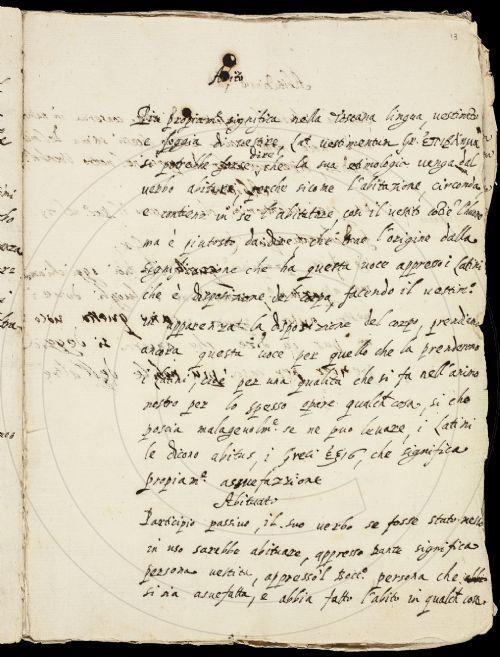 13
Abito
Più propiam.te significa nella Toscana lingua vestimento
e foggia di vestire, lat. vestimentum Gr.
si potrebbe forse dire che la sua etimologia venga dal
verbo abitare, perche sicome l'abitazione circonda
e contiene in se l'abitatore, così il vestito cope l'huomo
ma è piutosto da dire che trae l'origine dalla
significazione che ha questa voce appresso i latini
che è disposizione del corpo, facendo il vestim.to
in apparenza la disposizione del corpo, prendem
ancora questa voce per quello che la prenderono
i latini, cioè per una qualità che si fa nell'animo
nostro per lo spesso opare qualche cosa, si che
poscia malagevolm.te se ne puo levare, i latini
le dicono abitus, i Greci ἕξις, che significa
propiam.te assuefazzione
Abituato
Participio passivo, il suo verbo se fosse stato messo
in uso sarebbe abituare, appresso Dante significa
persona vestita, appresso'l Bocc.o persona che
si sia asuefatta, e abbia fatto l'abito in qualche cosa